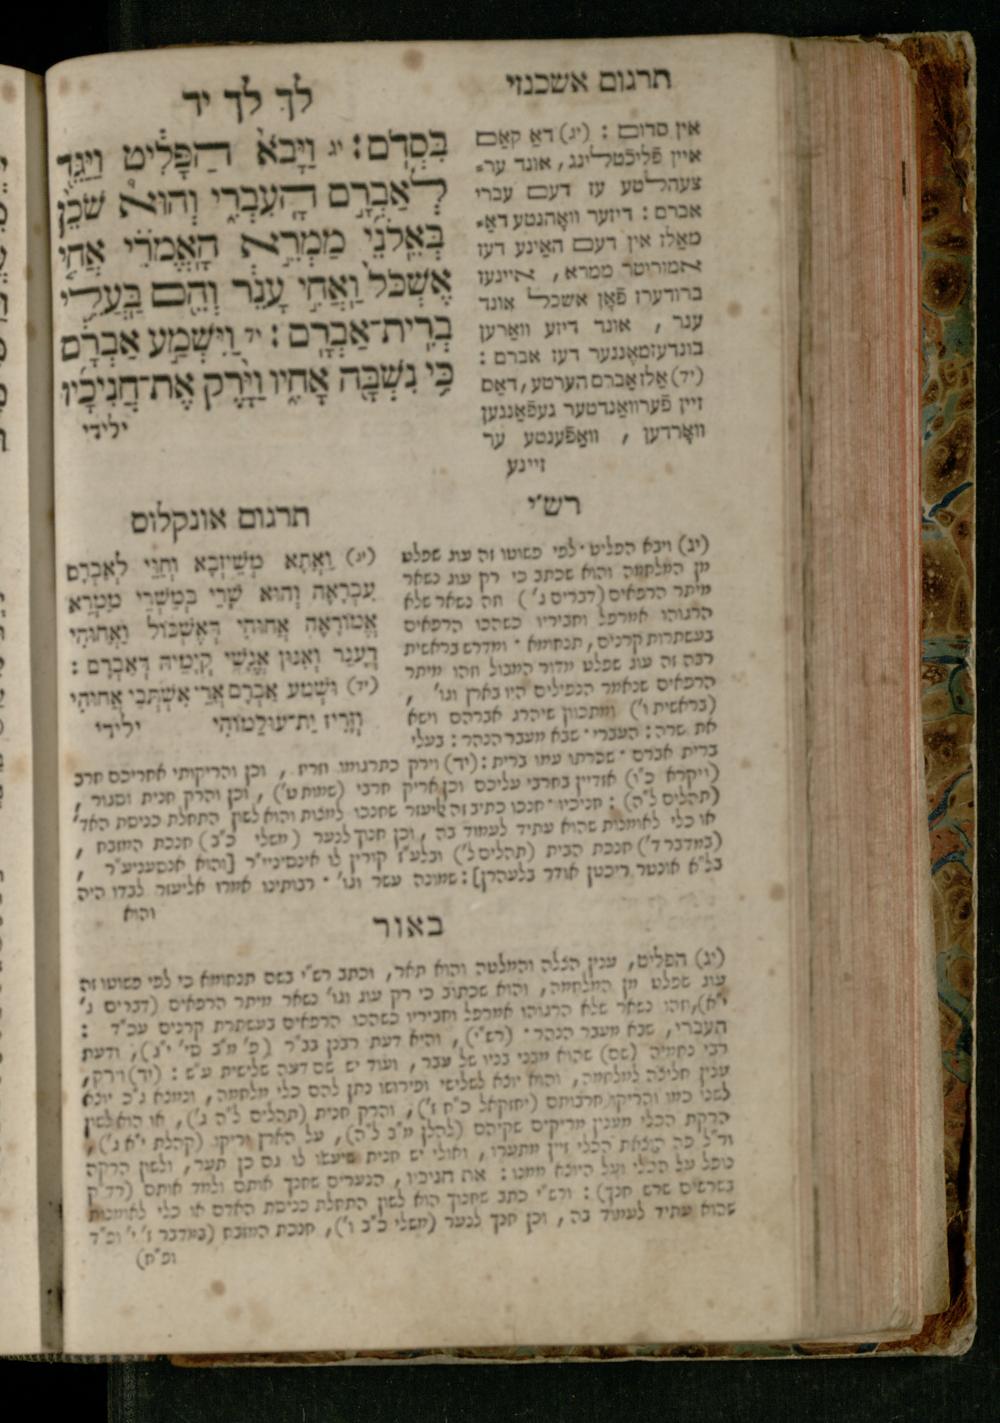 לך לך יד
בִּסְדֹם: יג וַיָּבֹא הַפָּלִיט וַיַּגֵּד
לְאַבְרָם הָעִבְרִי וְהוּא שֹׁכֵן
בְּאֵלֹנֵי מַמְרֵא הָאֱמֹרִי אֲחִי
אֶשְׁכֹּל וַאֲחִי עָנֵר וְהֵם בַּעֲלֵי
בְרִית־אַבְרָם: יד וַיִּשְׁמַע אַבְרָם
כִּי נִשְׁבָּה אָחִיו וַיָּרֶק אֶת־חֲנִיכָיו
ילידי
תרגום אשכנזי
אין סדום: (יג) דאַ קאַם
איין פֿליכטלינג, אונד ער־
צעהלטע עז דעם עברי
אברם: דיזער וואָהנטע דאַ־
מאַלז אין דעם האַינע דעז
אמוריטר ממרא, איינעז
ברודערז פֿאָן אשכל אונד
ענר, אונד דיזע וואַרען
בונדעזמאֶננער דעז אברם:
(יד) אַלז אברם הערטע, דאַס
זיין פֿערוואַנדטער געפֿאַנגען
וואָרדען, וואַפֿענטע ער
זיינע
תרגום אונקלוס
(יג) וַאֲתָא מְשֵׁיזְבָא וְחַוִּי לְאַבְרָם
עִבְרָאָה וְהוּא שָׁרֵי בְּמֵשְׁרֵי מַמְרֵא
אֱמוֹרָאָה אֲחוּהִי דְּאֶשְׁכּוֹל וַאֲחוּהִי
דְּעָנֵר וְאִנּוּן אֱנָשֵׁי קְיָמֵיהּ דְּאַבְרָם:
(יד) וּשְׁמַע אַבְרָם אֲרֵי אִשְׁתְּבִי אֲחוּהִי
וְזָרֵיז יַת־עוּלֵמוֹהִי ילידי
רש״י
(יג) ויבא הפליט · לפי פשוטו זה עוג שפלט
מן המלחמה והוא שכתב כי רק עוג נשאר
מיתר הרפאים (דברים ג') וזה נשאר שלא
הרגוהו אמרפל וחביריו כשהכו הרפאים
בעשתרות קרנים, תנחומא · ומדרש בראשית
רבה זה עוג שפלט מדור המבול וזהו מיתר
הרפאים שנאמר הנפילים היו בארץ וגו',
(בראשית ו') ומתכוון שיהרג אברהם וישא
את שרה: העברי · שבא מעבר הנהר: בעלי
ברית אברם · שכרתו עמו ברית: (יד) וירק כתרגומו וזריז, וכן והריקותי אחריכם חרב
(ויקרא כ״ו) אזדיין בחרבי עליכם וכן אריק חרבי (שמות ט'), וכן והרק חנית וסגור,
(תהלים ל״ה): חניכיו · חנכו כתיב זה אליעזר שחנכו למצות והוא לשון התחלת כניסת האד'
או כלי לאומנות שהוא עתיד לעמוד בה, וכן חנוך לנער (משלי כ״ב) חנכת המזבח,
(במדבר ד') חנכת הבית (תהלים ל') ובלע״ז קורין לו אינסיניי״ר [והוא אנסעניע״ר,
בל״א אונטר ריכטן אודר בלעהרן]: שמונה עשר וגו' · רבותינו אמרו אליעזר לבדו היה
והוא
באור
(יג) הפליט, ענין הצלה והמלטה והוא תאר, וכתב רש״י בשם תנחומא כי לפי פשוטו זה
עוג שפלט מן המלחמה, והוא שכתוב כי רק עוג וגו' נשאר מיתר הרפאים (דברים ג'
י״א), וזהו נשאר שלא הרגוהו אמרפל וחביריו כשהכו הרפאים בעשתרת קרנים עכ״ד:
העברי, שבא מעבר הנהר · (רש״י), והיא דעת רבנן בב״ר (פ' מ״ב סי' י״ג), ודעת
רבי נחמיה (שם) שהוא מבני בניו של עבר, ועוד יש שם דעה שלישית ע״ש: (יד) וירק,
ענין חליצה למלחמה, והוא יוצא לשלישי ופירושו נתן להם כלי מלחמה, ונמצא ג״כ יוצא
לשני כמו והריקו חרבותם (יחזקאל כ״ח ז'), והרק חנית (תהלים ל״ה ג'), או הוא לשון
הרקת הכלי מענין מריקים שקיהם (להלן מ״ב ל״ה), על הארץ יריקו (קהלת י״א ג'),
ור״ל פה הוצאת הכלי זיין מתערו, ואולי יש חנית שיעשו לו גם כן תער, ולשון הרקה
נופל על הכלי ועל היוצא ממנו: את חניכיו, הנערים שחנך אותם ולמד אותם (רד״ק
בשרשים שרש חנך): ורש״י כתב שחנוך הוא לשון התחלת כניסת האדם או כלי לאומנות
שהוא עתיד לעמוד בה, וכן חנך לנער (משלי כ״ב ו'), חנכת המזבח (במדבר ז' י' ופ״ד
ופ״ח)